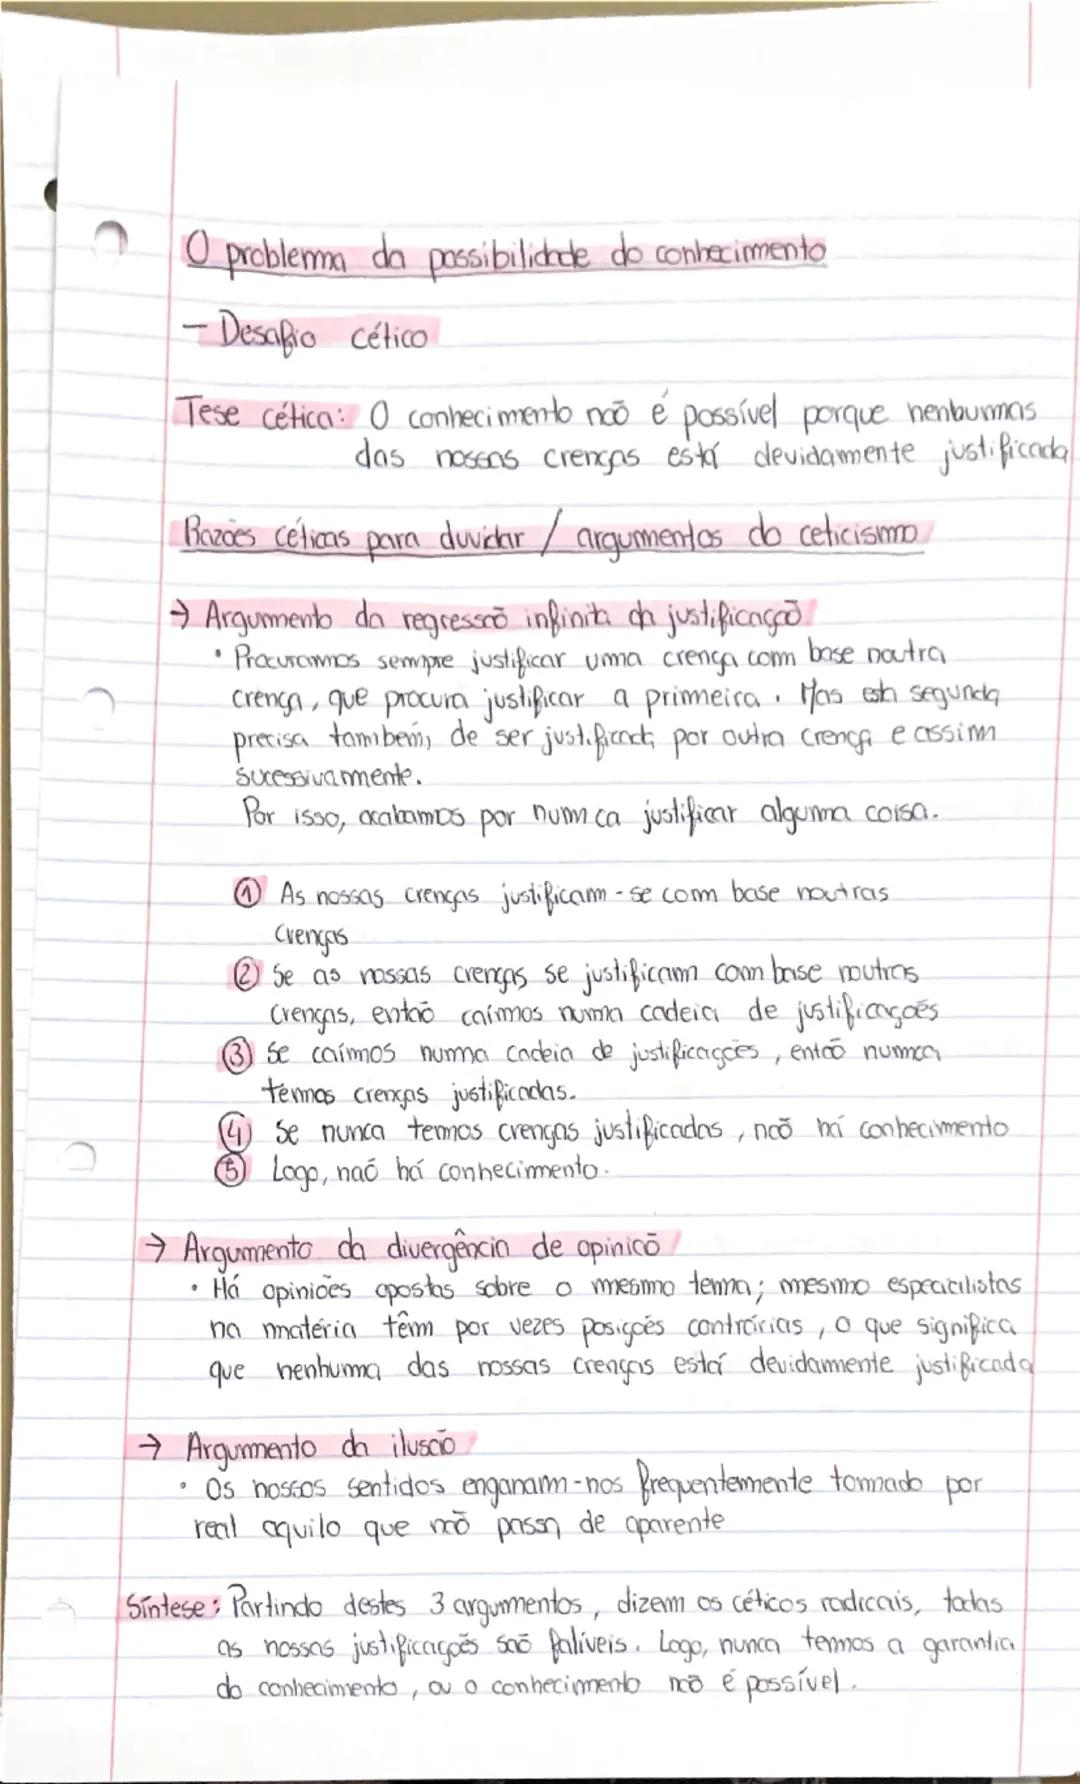 O problema da possibilidade do conhecimento
- Desafio cético
Tese cética: O conhecimento não é possível porque nenhumas
das nossas crenças está devidamente justificada
Razões céticas para duvidar / argumentos do ceticismo
→ Argumento da regressão infinita da justificação
• Procuramos sempre justificar uma crença com base noutra
crença, que procura justificar a primeira. Mas esta segunda,
precisa também, de ser justificada, por outra crença e assim
sucessivamente.
Por isso, acabamos por numca justificar alguma coisa.
① As nossas crenças justificam-se com base noutras
crenças
② Se as nossas crenças se justificam com base noutras
crenças, então caímos numa cadeia de justificações
③ Se caímos numa cadeia de justificações, então numca
temos crenças justificadas.
④ Se nunca temos crenças justificadas, não há conhecimento
⑤ Logo, não há conhecimento.
→ Argumento da divergência de opinião
• Há opiniões opostas sobre o mesmo tema; mesmo espeacilistas
na matéria têm por vezes posições contrárias, o que significa
que nenhuma das nossas crenças está devidamente justificada
→ Argumento da ilusão
• Os nossos sentidos enganam-nos frequentemente tomado por
real aquilo que não passa de aparente
Síntese: Partindo destes 3 argumentos, dizem os céticos radicais, todas
as nossas justificações são falíveis. Logo, nunca temos a garantia
do conhecimento, ou o conhecimento não é possível.